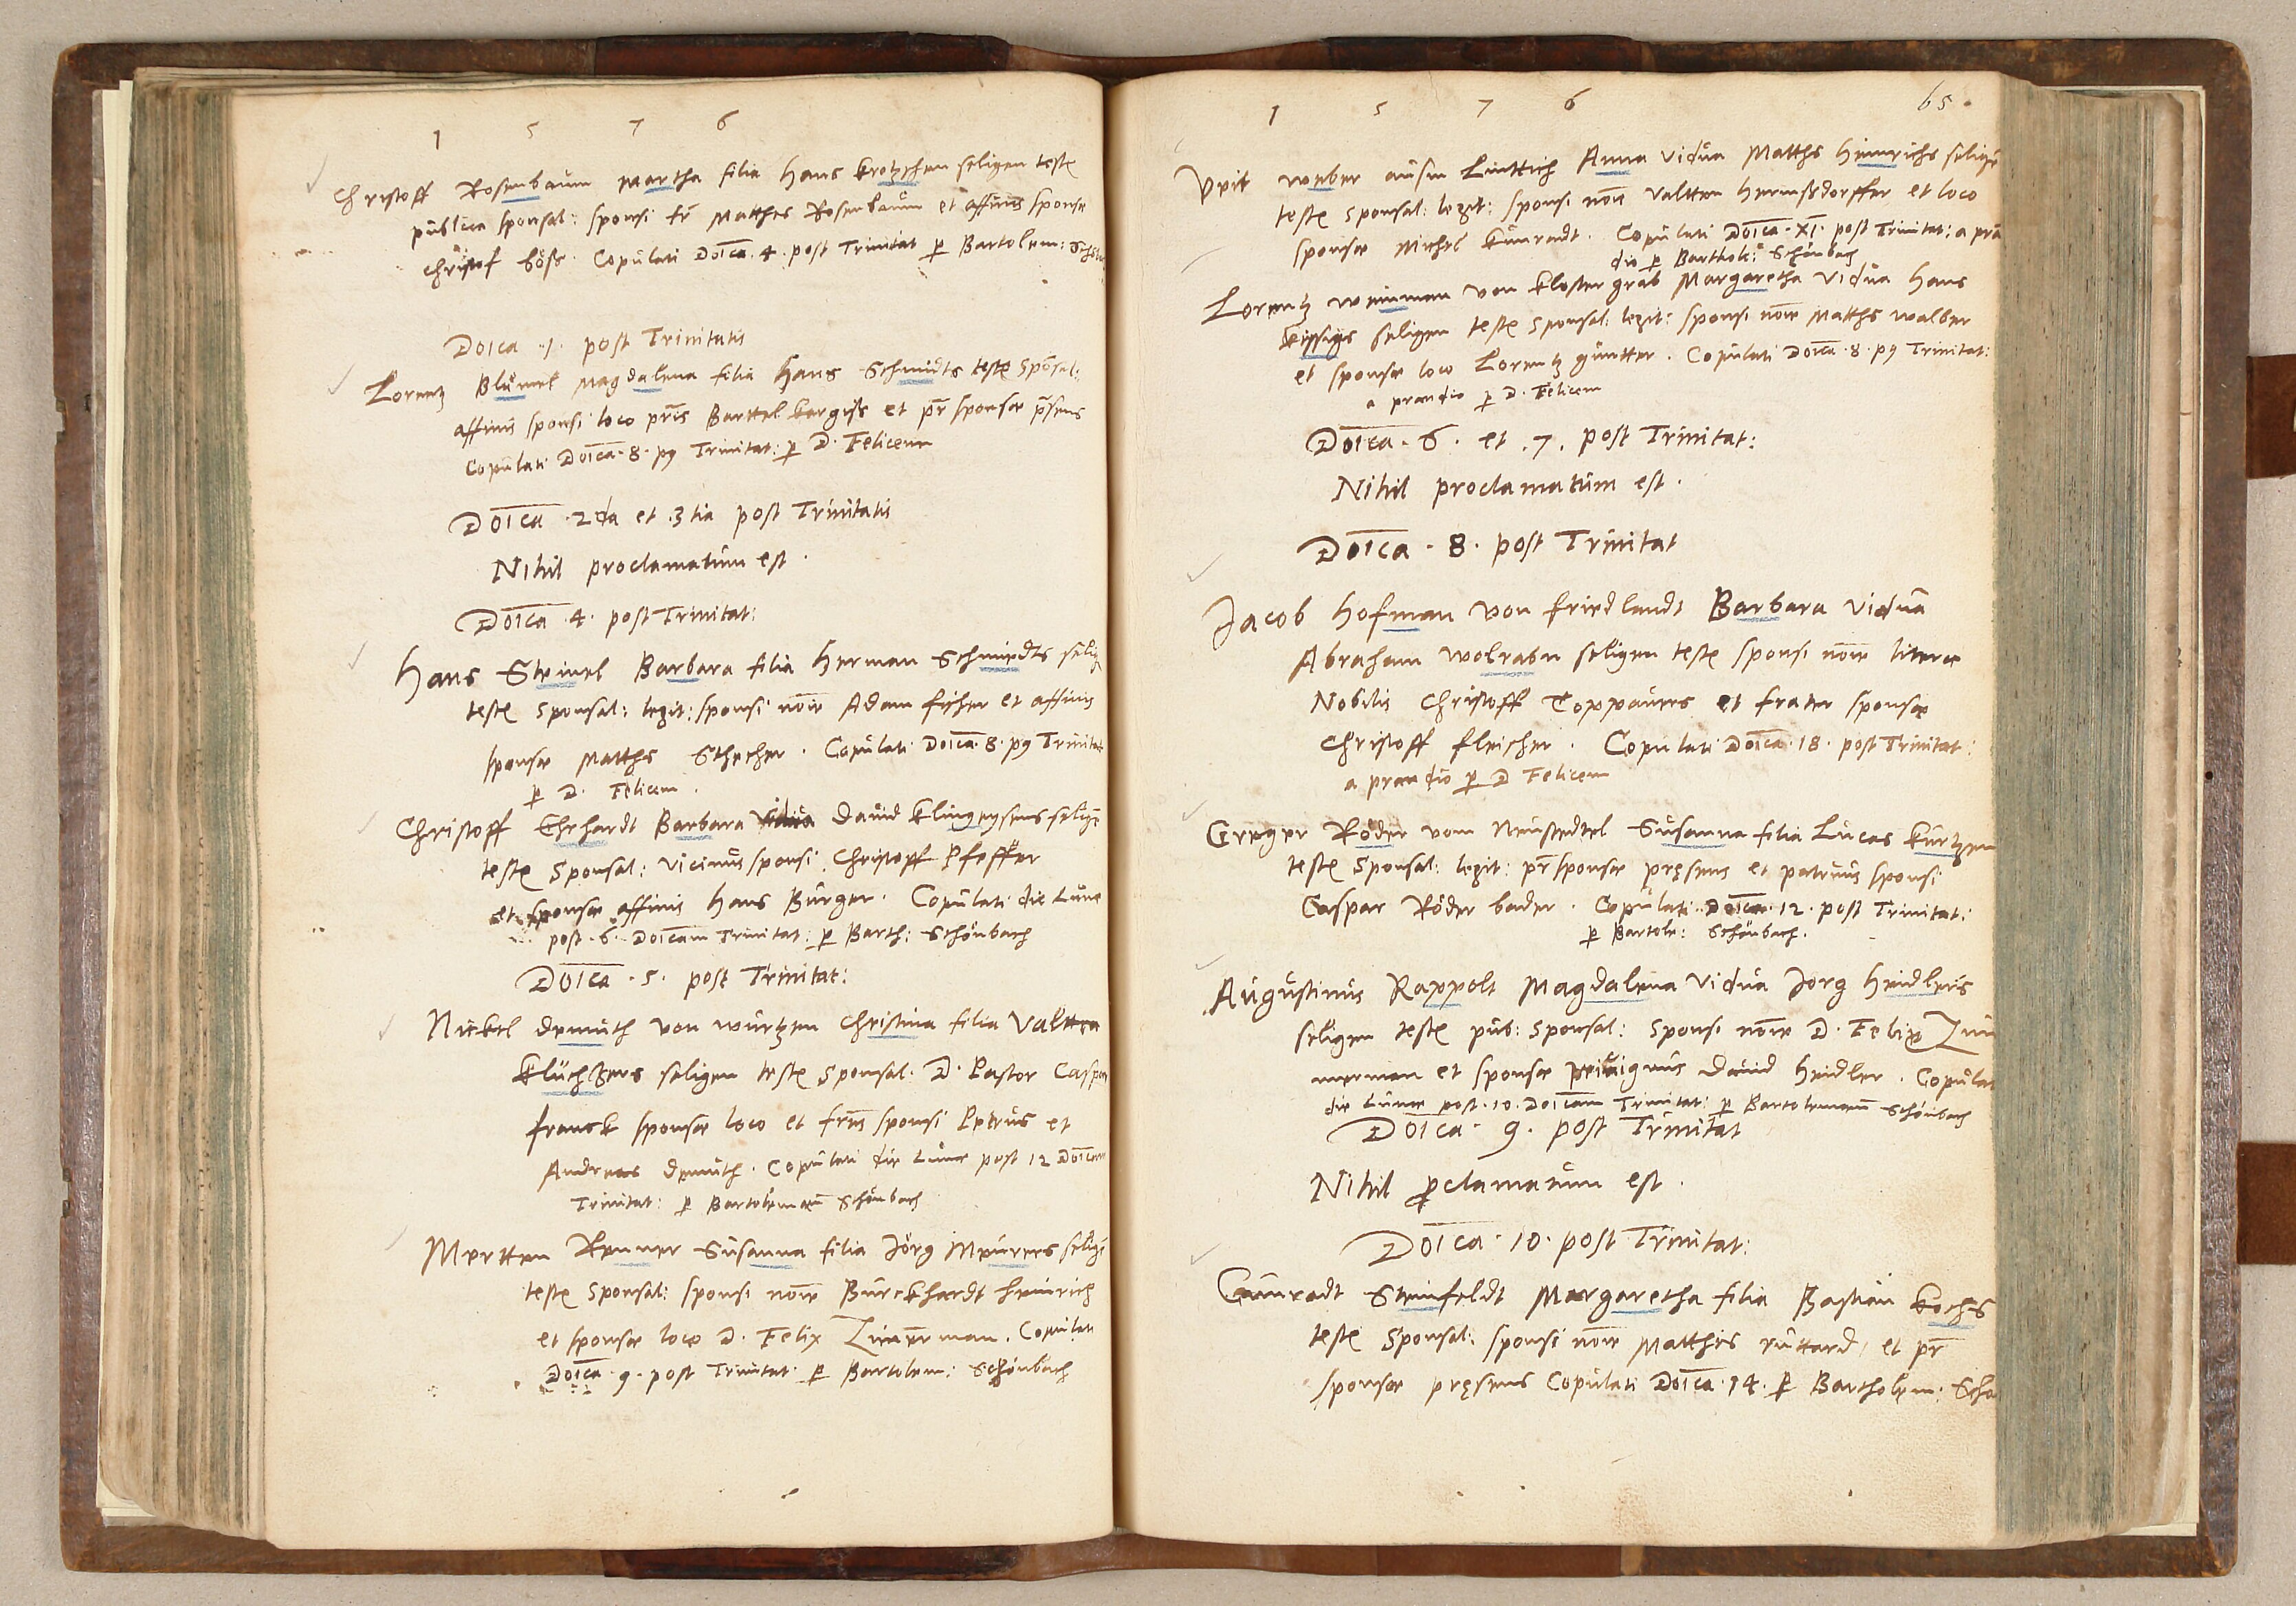 1 5 7 6
Christoff Rosenbaum Martha filia Hans krotzschen seligen teste
publica sponsal: sponsi fr̄ Matthes Rosenbaum et affinis sponsæ
Christof böss. Copulati Doīca 4. post Trinitat ꝑ Bartolem:
Doica .1. post Trinitatis
Lorentz Blümel Magdalena filia Hans Schmidts teste Sponsal:
affinis sponsi loco pr̄is Barttel kargiss et pr̄ sponsæ p̄sens
Copulati Doīca. 8. p9 Trinitat: ꝑ D. Felicem
Doīca .2da et .3tia post Trinitatis
Nihil proclamatum est.
Doīca .4. post Trinitat:
Hans Steinel Barbara filia Herman Schmiedts selig
teste Sponsal: legit: sponsi noīe Adam fischer et affinis
sponsæ Matths Stecher. Copulati Doīca. 8. p9 Trinitat
ꝑ D. Felicem.
Christoff Ehrhardt Barbara David klingeysens seligē
teste Sponsal: vicinus sponsi Christoff Pfeffer
et sponsæ affinis Hans Bürger. Copulati die Lunæ
post .6. Doīcam Trinitat: ꝑ Barth: Schönbach
Doīca .5. post Trinitat:
Nickel demuth von wurtzen Christina filia Valtten
klüchzers seligen teste Sponsal. D. Pastor Caspar
franck sponsæ loco et fr̄es sponsi Petrus et
Andreas demuth. Copulati die Lunæ post 12 Doīcam
Trinitat: ꝑ Bartolemaeū Schönbach
Mertten Renner Susanna filia Jörg Meurers seligē
teste Sponsal: sponsi noīe Burckhardt heinrich
et sponsæ loco D. Felix Zimmerman. Copulati
Doīca .9. post Trinitat ꝑ Bartolem: Schönbach
1 5 7 6
65.
Veit weber ausm Lüttich Anna vidua Matths Heinrichs seligē
teste Sponsal: legit: sponsi noīe Valtten Hermssdorffer et loco
sponsæ Michel kunradt. Copulati Doīca .XI. post Trinitat: a pran
dio ꝑ Barthole: Schönbach
Lorentz weinman von klostergrab Margaretha vidua Hans
seligen teste Sponsal: legit: sponsi noīe Matths walber
et sponsæ loco Lorentz güntter. Copulati Doīca .8. p9 Trinitat:
a prandio ꝑ D. Felicem
Doīca .6. et .7. post Trinitat:
Nihil proclamatum est.
Doīca .8. post Trinitat
Jacob Hofman von friedlandt Barbara vidua
Abraham wolrabn seligen teste sponsi noīe literæ
Nobilis Christoff Toppauers et frater sponsæ
Christoff fleischer. Copulati Doīca .18. post Trinitat:
a prandio ꝑ D Felicem
Greger Röder vom Neustedtel Susanna filia Lucas kurtzen
teste Sponsal: legit: pr̄ sponsæ pręsens et patruus sponsi
Caspar Röder bader. Copulati Doīca .12. post Trinitat:
ꝑ Bartole: Schönbach.
Augustinus Rappolt Magdalena vidua Jorg heidlers
seligen teste pub: Sponsal: sponsi noīe D. Felix Zim
merman et sponsæ privignus David heidler. Copulat
die Lunæ post .10. Doīcam Trinitat: ꝑ Bartolemaeū Schönbach
Doīca .9. post Trinitat
Nihil ꝓclamatum est.
Doīca .10. post Trinitat:
Cunradt Steinfeldt Margaretha filia Bastian kochs
teste Sponsal: sponsi noīe Matthes ruttard, et pr̄
sponsæ pręsens Copulati Doīca .14. ꝑ Bartholem: Schö